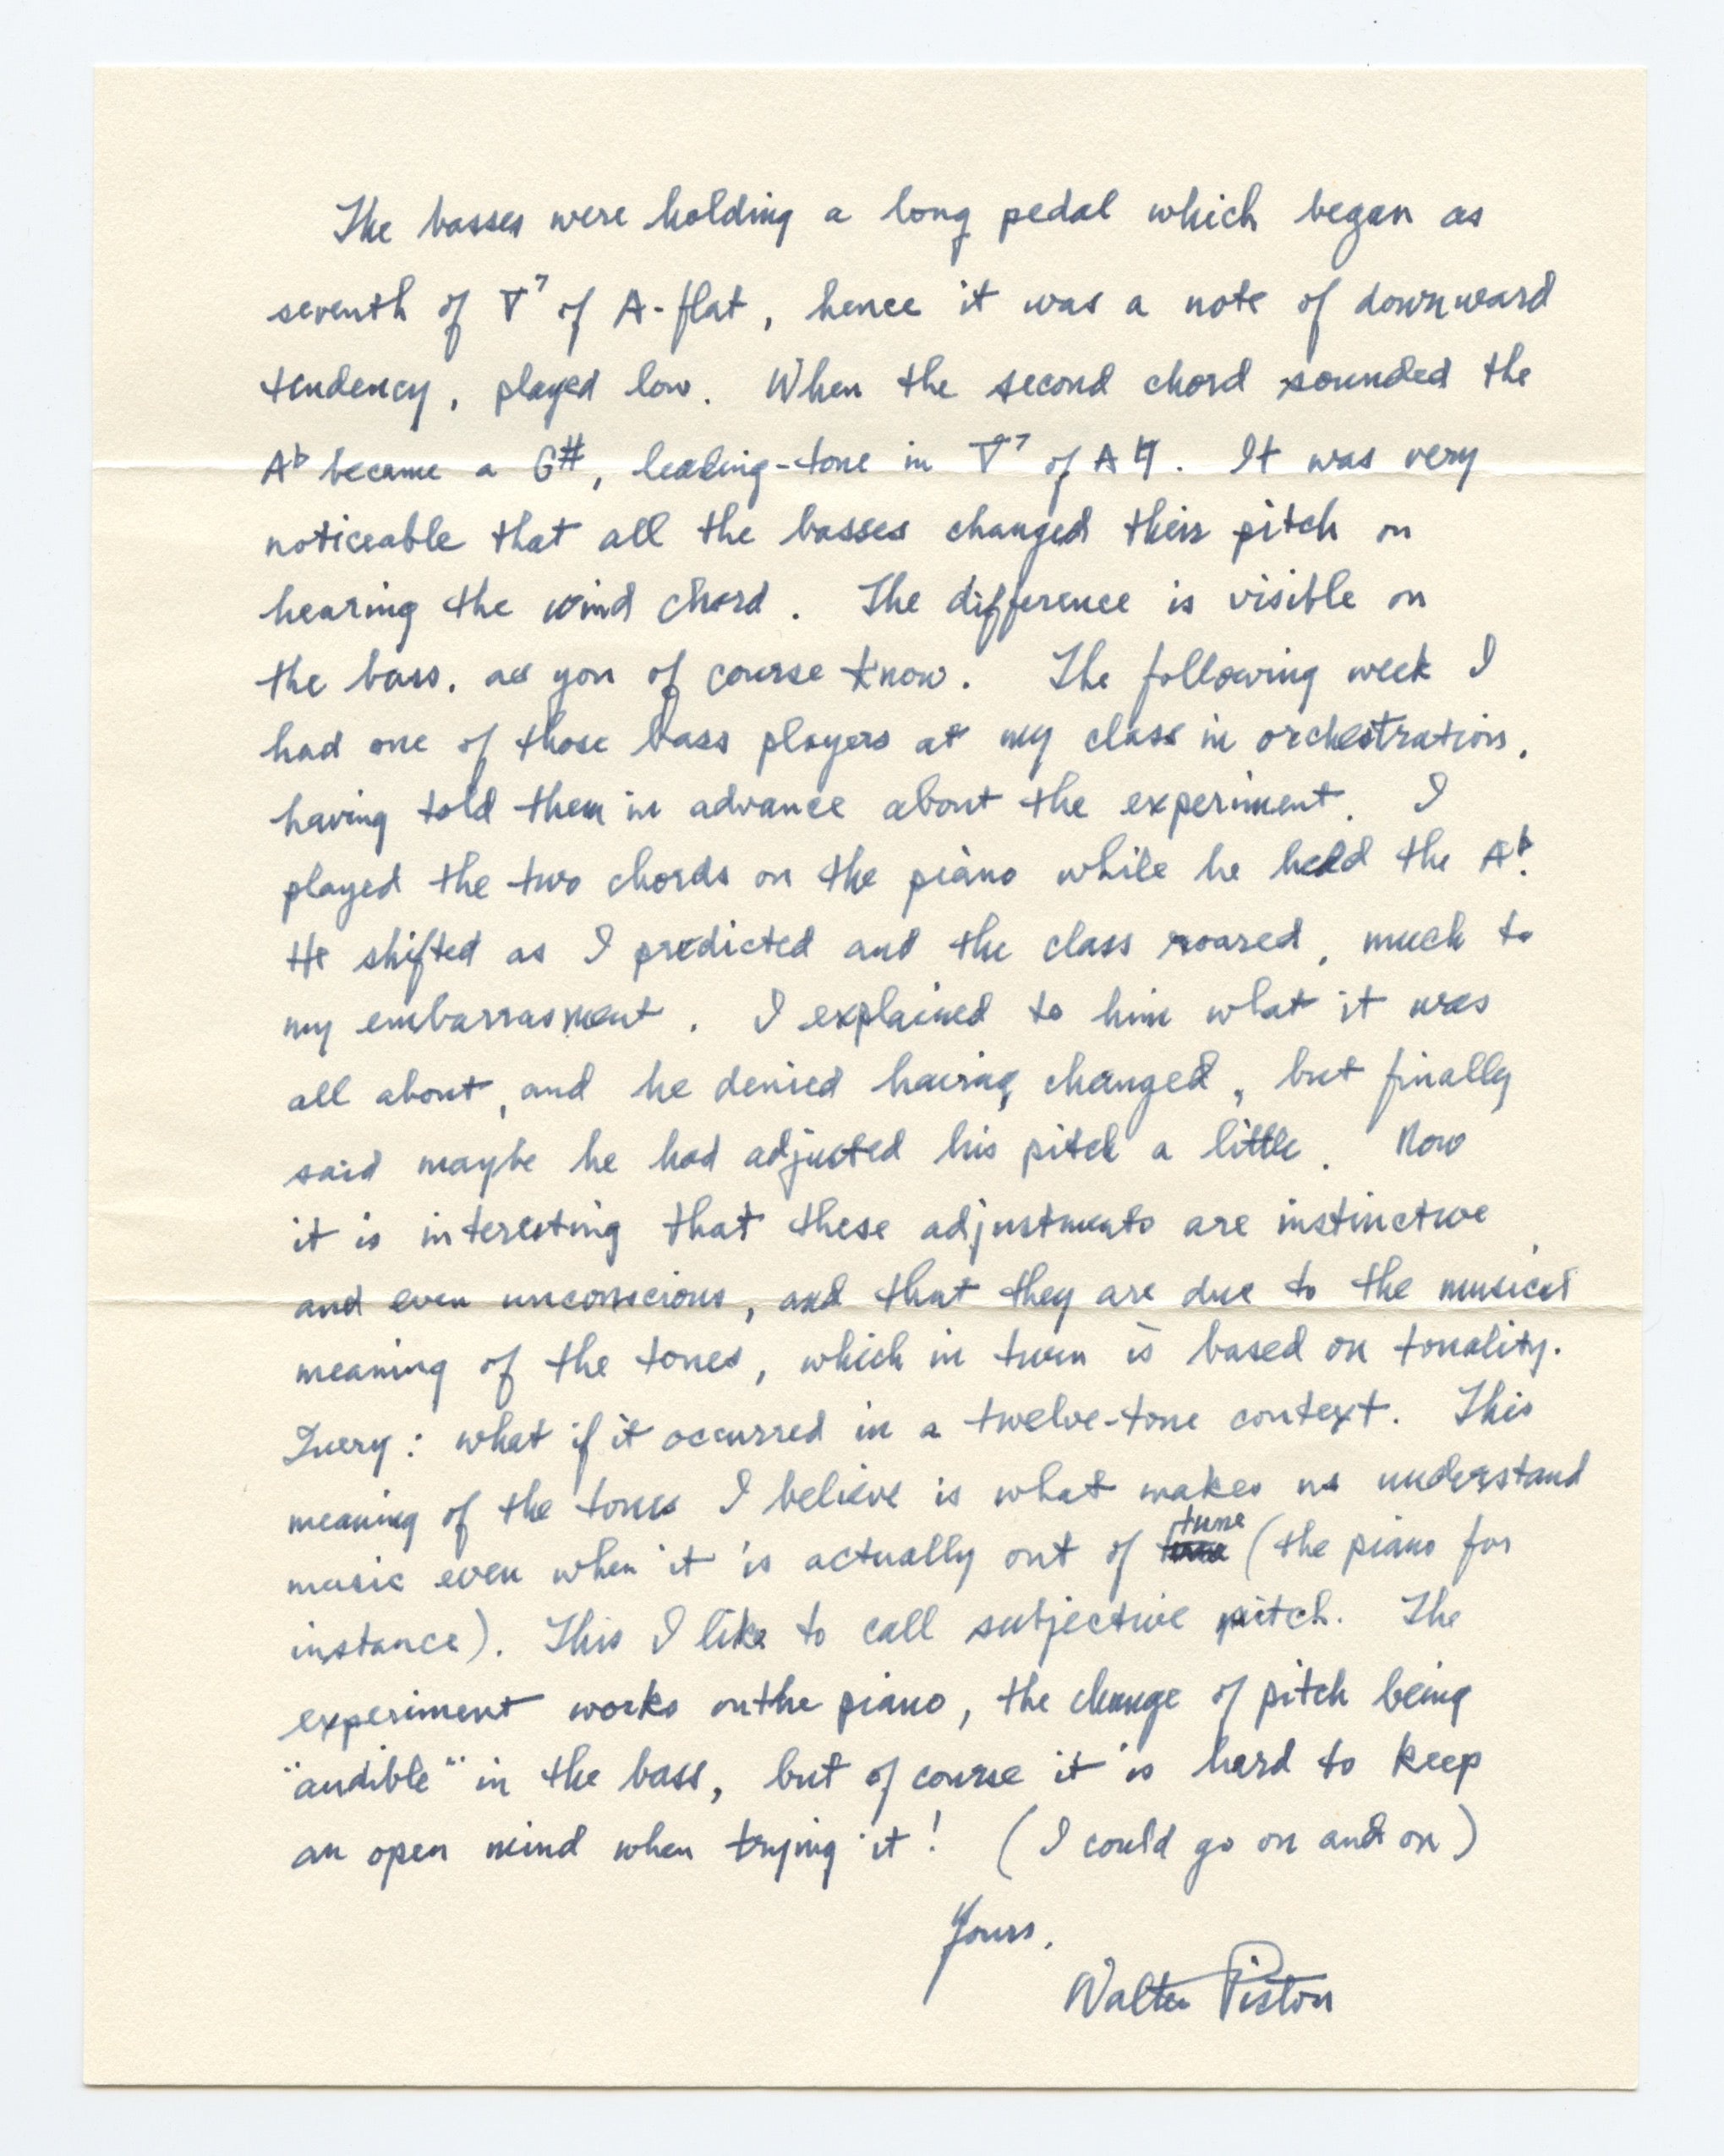 The basses were holding a long pedal which began as
seventh of V⁷ of A-flat, hence it was a note of downward
tendency, played low. When the second chord sounded the
A♭ became a G#, leading-tone in V⁷ of A♮. It was very
noticeable that all the basses changed their pitch on
hearing the wind chord. The difference is visible on
the bass. as you of course know. The following week I
had one of those bass players at my class in orchestration,
having told them in advance about the experiment. I
played the two chords on the piano while he held the A♭.
He shifted as I predicted and the class roared, much to
my embarrasment. I explained to him what it was
all about, and he denied having changed, but finally
said maybe he had adjusted his pitch a little. Now
it is interesting that these adjustments are instinctive
and even unconscious, and that they are due to the musical
meaning of the tones, which in turn is based on tonality.
Query: what if it occurred in a twelve-tone context. This
meaning of the tones I believe is what makes us understand
music even when it is actually out of tune (the piano for
instance). This I like to call subjective pitch. The
experiment works on the piano, the change of pitch being
"audible" in the bass, but of course it is hard to keep
an open mind when trying it! (I could go on and on)
Yours,
Walter Piston